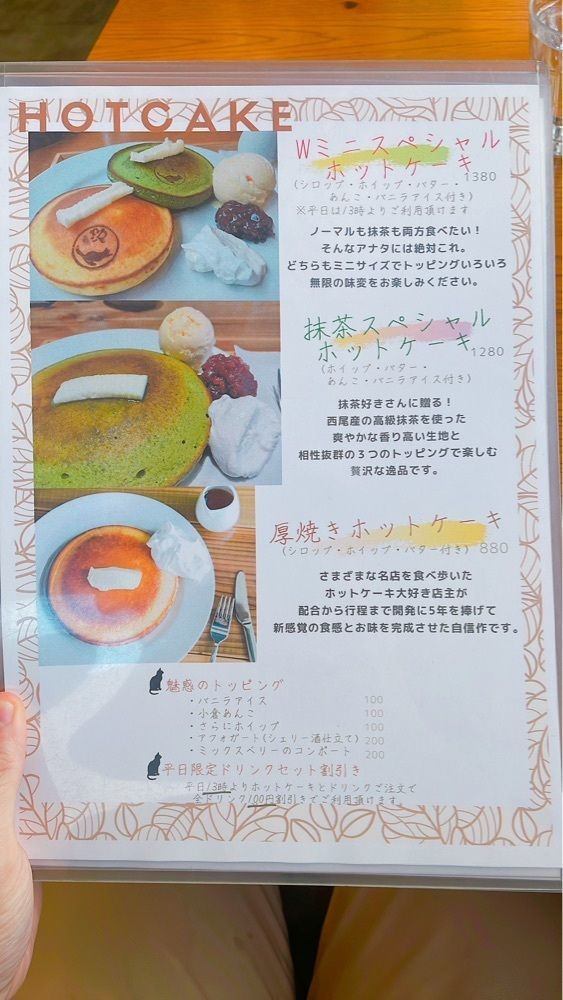 HOTCAKE
Wミニスペシャル
ホットケーキ
1380
(シロップ・ホイップ・バター・
あんこ・バニラアイス付き)
※平日は13時よりご利用頂けます
ノーマルも抹茶も両方食べたい！
そんなアナタには絶対これ。
どちらもミニサイズでトッピングいろいろ
無限の味変をお楽しみください。
抹茶スペシャル
ホットケーキ
1280
(ホイップ・バター・
あんこ・バニラアイス付き)
抹茶好きさんに贈る！
西尾産の高級抹茶を使った
爽やかな香り高い生地と
相性抜群の３つのトッピングで楽しむ
贅沢な逸品です。
厚焼きホットケーキ
(シロップ・ホイップ・バター付き) 880
さまざまな名店を食べ歩いた
ホットケーキ大好き店主が
配合から行程まで開発に5年を捧げて
新感覚の食感とお味を完成させた自信作です。
魅惑のトッピング
・バニラアイス 100
・小倉あんこ 100
・さらにホイップ 100
・アフォガート(シェリー酒仕立て) 200
・ミックスベリーのコンポート 200
平日限定ドリンクセット割引き
平日13時よりホットケーキとドリンクご注文で
全ドリンク100円割引きでご利用頂けます。